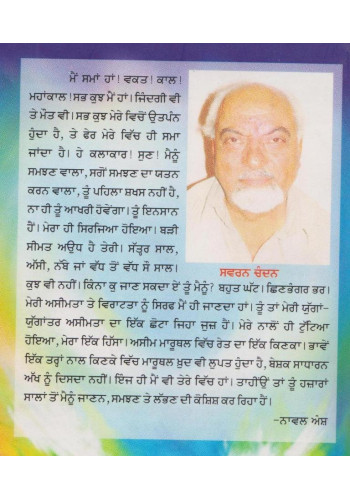 ਮੈਂ ਸਮਾਂ ਹਾਂ! ਵਕਤ! ਕਾਲ!
ਮਹਾਂਕਾਲ! ਸਭ ਕੁਝ ਮੈਂ ਹਾਂ। ਜਿੰਦਗੀ ਵੀ
ਤੇ ਮੌਤ ਵੀ। ਸਭ ਕੁਝ ਮੇਰੇ ਵਿਚੋਂ ਉਤਪੰਨ
ਹੁੰਦਾ ਹੈ, ਤੇ ਫੇਰ ਮੇਰੇ ਵਿੱਚ ਹੀ ਸਮਾ
ਜਾਂਦਾ ਹੈ। ਹੇ ਕਲਾਕਾਰ! ਸੁਣ! ਮੈਨੂੰ
ਸਮਝਣ ਵਾਲਾ, ਸਗੋਂ ਸਮਝਣ ਦਾ ਯਤਨ
ਕਰਨ ਵਾਲਾ, ਤੂੰ ਪਹਿਲਾ ਸ਼ਖਸ ਨਹੀਂ ਹੈ,
ਨਾ ਹੀ ਤੂੰ ਆਖਰੀ ਹੋਵੇਂਗਾ। ਤੂੰ ਇਨਸਾਨ
ਹੈਂ। ਮੇਰਾ ਹੀ ਸਿਰਜਿਆ ਹੋਇਆ। ਬੜੀ
ਸੀਮਤ ਅਉਧ ਹੈ ਤੇਰੀ। ਸੱਤ੍ਹਰ ਸਾਲ,
ਅੱਸੀ, ਨੱਬੇ ਜਾਂ ਵੱਧ ਤੋਂ ਵੱਧ ਸੌ ਸਾਲ।
ਸਵਰਨ ਚੰਦਨ
ਕੁਝ ਵੀ ਨਹੀਂ। ਕਿੰਨਾ ਕੁ ਜਾਣ ਸਕਦਾ ਏਂ ਤੂੰ ਮੈਨੂੰ? ਬਹੁਤ ਘੱਟ। ਛਿਣਭੰਗਰ ਭਰ।
ਮੇਰੀ ਅਸੀਮਤਾ ਤੇ ਵਿਰਾਟਤਾ ਨੂੰ ਸਿਰਫ ਮੈਂ ਹੀ ਜਾਣਦਾ ਹਾਂ। ਤੂੰ ਤਾਂ ਮੇਰੀ ਯੁੱਗਾਂ-
ਯੁੱਗਾਂਤਰ ਅਸੀਮਤਾ ਦਾ ਇੱਕ ਛੋਟਾ ਜਿਹਾ ਜੁਜ਼ ਹੈਂ। ਮੇਰੇ ਨਾਲੋਂ ਹੀ ਟੁੱਟਿਆ
ਹੋਇਆ, ਮੇਰਾ ਇੱਕ ਹਿੱਸਾ। ਅਸੀਮ ਮਾਰੂਥਲ ਵਿੱਚ ਰੇਤ ਦਾ ਇੱਕ ਕਿਣਕਾ। ਭਾਵੇਂ
ਇੱਕ ਤਰ੍ਹਾਂ ਨਾਲ ਕਿਣਕੇ ਵਿੱਚ ਮਾਰੂਥਲ ਖ਼ੁਦ ਵੀ ਲੁਪਤ ਹੁੰਦਾ ਹੈ, ਬੇਸ਼ਕ ਸਾਧਾਰਨ
ਅੱਖ ਨੂੰ ਦਿਸਦਾ ਨਹੀਂ। ਇੰਜ ਹੀ ਮੈਂ ਵੀ ਤੇਰੇ ਵਿੱਚ ਹਾਂ। ਤਾਹੀਉਂ ਤਾਂ ਤੂੰ ਹਜ਼ਾਰਾਂ
ਸਾਲਾਂ ਤੋਂ ਮੈਨੂੰ ਜਾਣਨ, ਸਮਝਣ ਤੇ ਲੱਭਣ ਦੀ ਕੋਸ਼ਿਸ਼ ਕਰ ਰਿਹਾ ਹੈਂ।
-ਨਾਵਲ ਅੰਸ਼